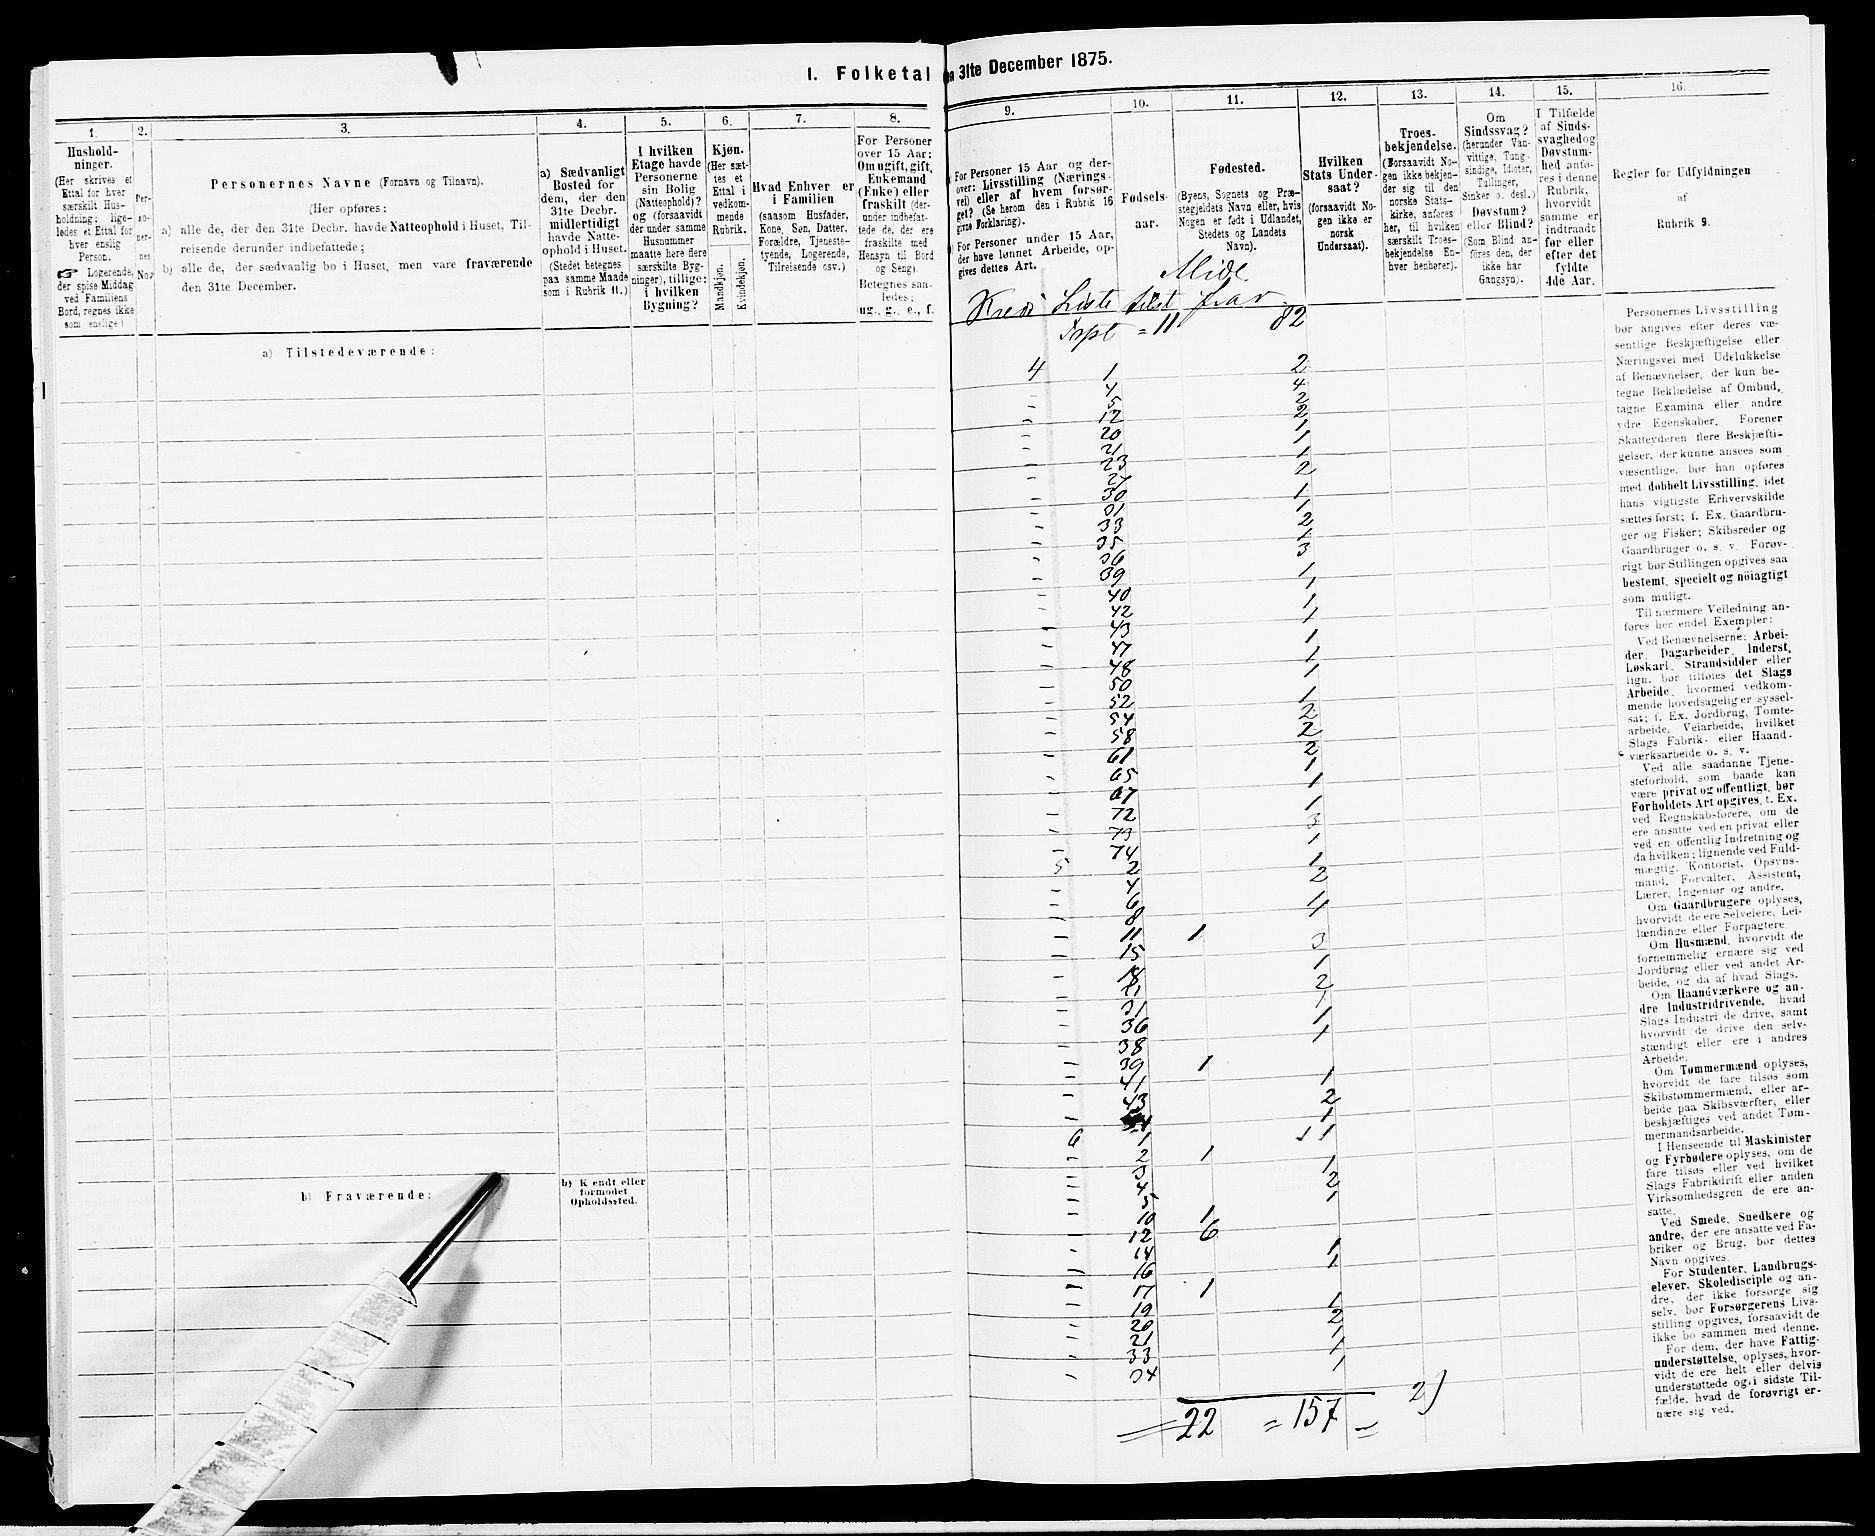 I. Folketal
en 31te December 1875.
1.
2.
3.
4.
5.
6.
7.
8.
9.
10.
11.
12.
13.
14.
15.
16.
Hushold-
ninger.
(Her skrives et
Ettal for hver
særskilt Hus-
holdning; lige-
ledes et Ettal for
hver enslig
Person.
☞ Logerende,
der spise Middag
ved Familiens
Bord, regnes ikke
som enslige.)
Per-
so-
ner-
nes
No.
Personernes Navne (Fornavn og Tilnavn).
(Her opføres:
a) alle de, der den 31te Decbr. havde Natteophold i Huset, Til-
reisende derunder indbefattede;
b) alle de, der sædvanlig bo i Huset, men vare fraværende
den 31te December.
a) Sædvanligt
Bosted for
dem, der den
31te Decbr.
midlertidigt
havde Natte-
ophold i Huset.
(Stedet betegnes
paa samme Maade
som i Rubrik 11.)
I hvilken
Etage havde
Personerne
sin Bolig
(Natteophold)?
og (forsaavidt
der under samme
Husnummer
maatte høre flere
særskilte Byg-
ninger), tillige:
i hvilken
Bygning?
Kjøn.
(Her sæt-
tes et
Ettal i
vedkom-
mende
Rubrik.
Mandkjøn.
Kvindekjøn.
Hvad Enhver er
i Familien
(saasom Husfader,
Kone, Søn, Datter,
Forældre, Tjeneste-
tyende, Logerende,
Tilreisende osv.)
For Personer
over 15 Aar:
Om ugift, gift,
Enkemand
(Enke) eller
fraskilt (der-
under indbefat-
tede de, der ere
fraskilte med
Hensyn til Bord
og Seng).
Betegnes saa-
ledes:
ug., g., e., f.
For Personer 15 Aar og der-
over: Livsstilling (Nærings-
vei) eller af hvem forsør-
get? (Se herom den i Rubrik 16
givne Forklaring).
For Personer under 15 Aar,
der have lønnet Arbeide, op-
gives dettes Art.
Fødsels-
aar.
Fødested.
(Byens, Sognets og Præ-
stegjeldets Navn eller, hvis
Nogen er født i Udlandet,
Stedets og Landets
Navn).
Hvilken
Stats Under-
saat?
(forsaavidt No-
gen ikke er
norsk
Undersaat).
Troes-
bekjendelse.
(Forsaavidt No-
gen ikke bekjen-
der sig til den
norske Stats-
kirke, anføres
her, til hvilken
særskilt Troes-
bekjendelse En-
hver henhører).
Om
Sindssvag?
(herunder Van-
vittige, Tung-
sindige, Idioter,
Tullinger,
Sinker o. desl.)
Døvstum?
eller Blind?
(Som Blind an-
føres den, der
ikke har
Gangsyn).
I Tilfælde
af Sinds-
svaghed og
Døvstum-
hed anfø-
res i denne
Rubrik,
hvorvidt
samme er
indtraadt
før eller
efter det
fyldte
4de Aar.
Regler for Udfyldningen
af
Rubrik 9.
Kreds Liste tilst frav.
= 11 82
a) Tilstedeværende:
4 1 2
" 4 4
" 5 2
" 12 2
" 20 1
" 21 1
" 23 1
" 27 2
" 30 1
" 31 1
" 33 2
" 35 1
" 36 3
" 39 1
" 40 1
" 42 1
" 43 1
" 47 1
" 48 1
" 50 1
" 52 1
" 54 2
" 58 2
" 61 2
" 65 1
" 67 1
" 72 1
" 73 3
" 74 1
5 2 1
" 4 2
" 6 1
" 8 1
" 11 1
" 15 3
" 18 1
" 21 2
" 31 1
" 36 1
" 38 1
" 39 1
" 41 1
" 43 2
6 1 1
" 2 1
" 3 1
" 4 2
" 5 1
" 10 1
" 12 6
" 14 1
" 16 1
" 17 1
" 19 1
" 20 2
" 21 1
" 33 1
" 34 1
= 22 = 157 = 2)
b) Fraværende:
b) Kjendt eller
formodet
Opholdssted.
Personernes Livsstilling
bør angives efter deres væ-
sentlige Beskjæftigelse eller
Næringsvei med Udelukkelse
af Benævnelser, der kun be-
tegne Beklædelse af Ombud,
tagne Examina eller andre
ydre Egenskaber. Forener
Skatteyderen flere Beskjæfti-
gelser, der kunne ansees som
væsentlige, bør han opføres
med dobbelt Livsstilling, idet
hans vigtigste Erhvervskilde
sættes først; f. Ex. Gaardbru-
ger og Fisker; Skibsreder og
Gaardbruger o. s. v. Forøv-
rigt bør Stillingen opgives saa
bestemt, specielt og nøiagtigt
som muligt.
Til nærmere Veiledning an-
føres her endel Exempler:
Ved Benævnelserne: Arbei-
der, Dagarbeider, Inderst,
Løskarl, Strandsidder eller
lign. bør tilføies det Slags
Arbeide, hvormed vedkom-
mende hovedsagelig er syssel-
sat; f. Ex. Jordbrug, Tomte-
arbeide, Veiarbeide, hvilket
Slags Fabrik- eller Haand-
værksarbeide o. s. v.
Ved alle saadanne Tjene-
steforhold, som baade kan
være privat og offentligt, bør
Forholdets Art opgives, f. Ex.
ved Regnskabsførere, om de
ere ansatte ved en privat eller
ved en offentlig Indretning og
da hvilken; lignende ved Fuld-
mægtig, Kontorist, Opsyns-
mand, Forvalter, Assistent,
Lærer, Ingeniør og andre.
Om Gaardbrugere oplyses,
hvorvidt de ere Selveiere, Lei-
lændinge eller Forpagtere.
Om Husmænd, hvorvidt de
fornemmelig ernære sig ved
Jordbrug eller ved andet Ar-
beide, og da af hvad Slags.
Om Haandværkere og an-
dre Industridrivende, hvad
Slags Industri de drive, samt
hvorvidt de drive den selv-
stændigt eller ere i andres
Arbeide.
Om Tømmermænd oplyses,
hvorvidt de fare tilsøs som
Skibstømmermænd, eller ar-
beide paa Skibsværfter, eller
beskjæftiges ved andet Tøm-
mermandsarbeide.
I Henseende til Maskinister
og Fyrbødere oplyses, om de
fare tilsøs eller ved hvilket
Slags Fabrikdrift eller anden
Virksomhedsgren de ere an-
satte.
Ved Smede, Snedkere og
andre, der ere ansatte ved Fa-
briker og Brug, bør dettes
Navn opgives.
For Studenter, Landbrugs-
elever, Skoledisciple og an-
dre, der ikke forsørge sig
selv, bør Forsørgerens Livs-
stilling opgives, forsaavidt de
ikke bo sammen med denne.
For dem, der have Fattig-
understøttelse, oplyses, hvor-
vidt de ere helt eller delvis
understøttede og i sidste Til-
fælde, hvad de forøvrigt er-
nære sig ved.